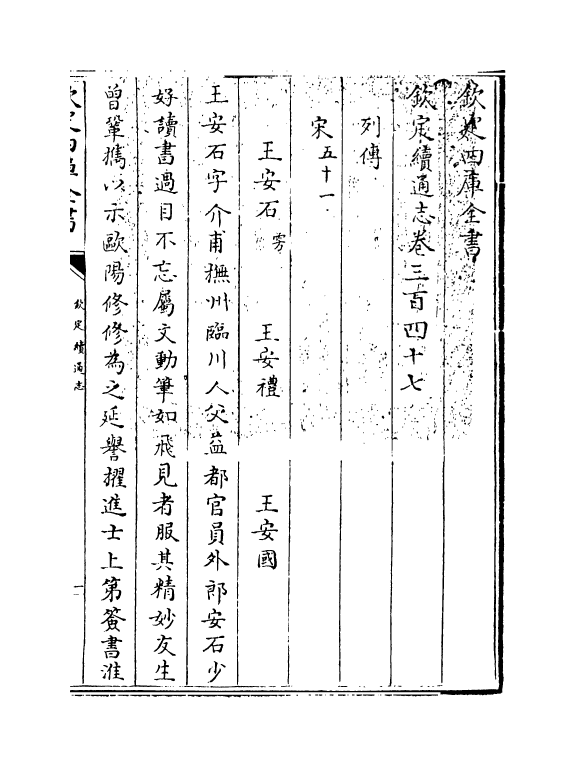 欽定四庫全書
欽定續通志卷三百四十七
列傳
宋五十一
王安石雱 王安禮 王安國
王安石字介甫撫州臨川人父益都官員外郎安石少
好讀書過目不忘屬文動筆如飛見者服其精妙友生
曾鞏攜以示歐陽修修為之延譽擢進士上第簽書淮
欽定四庫全書
欽定續通志
一